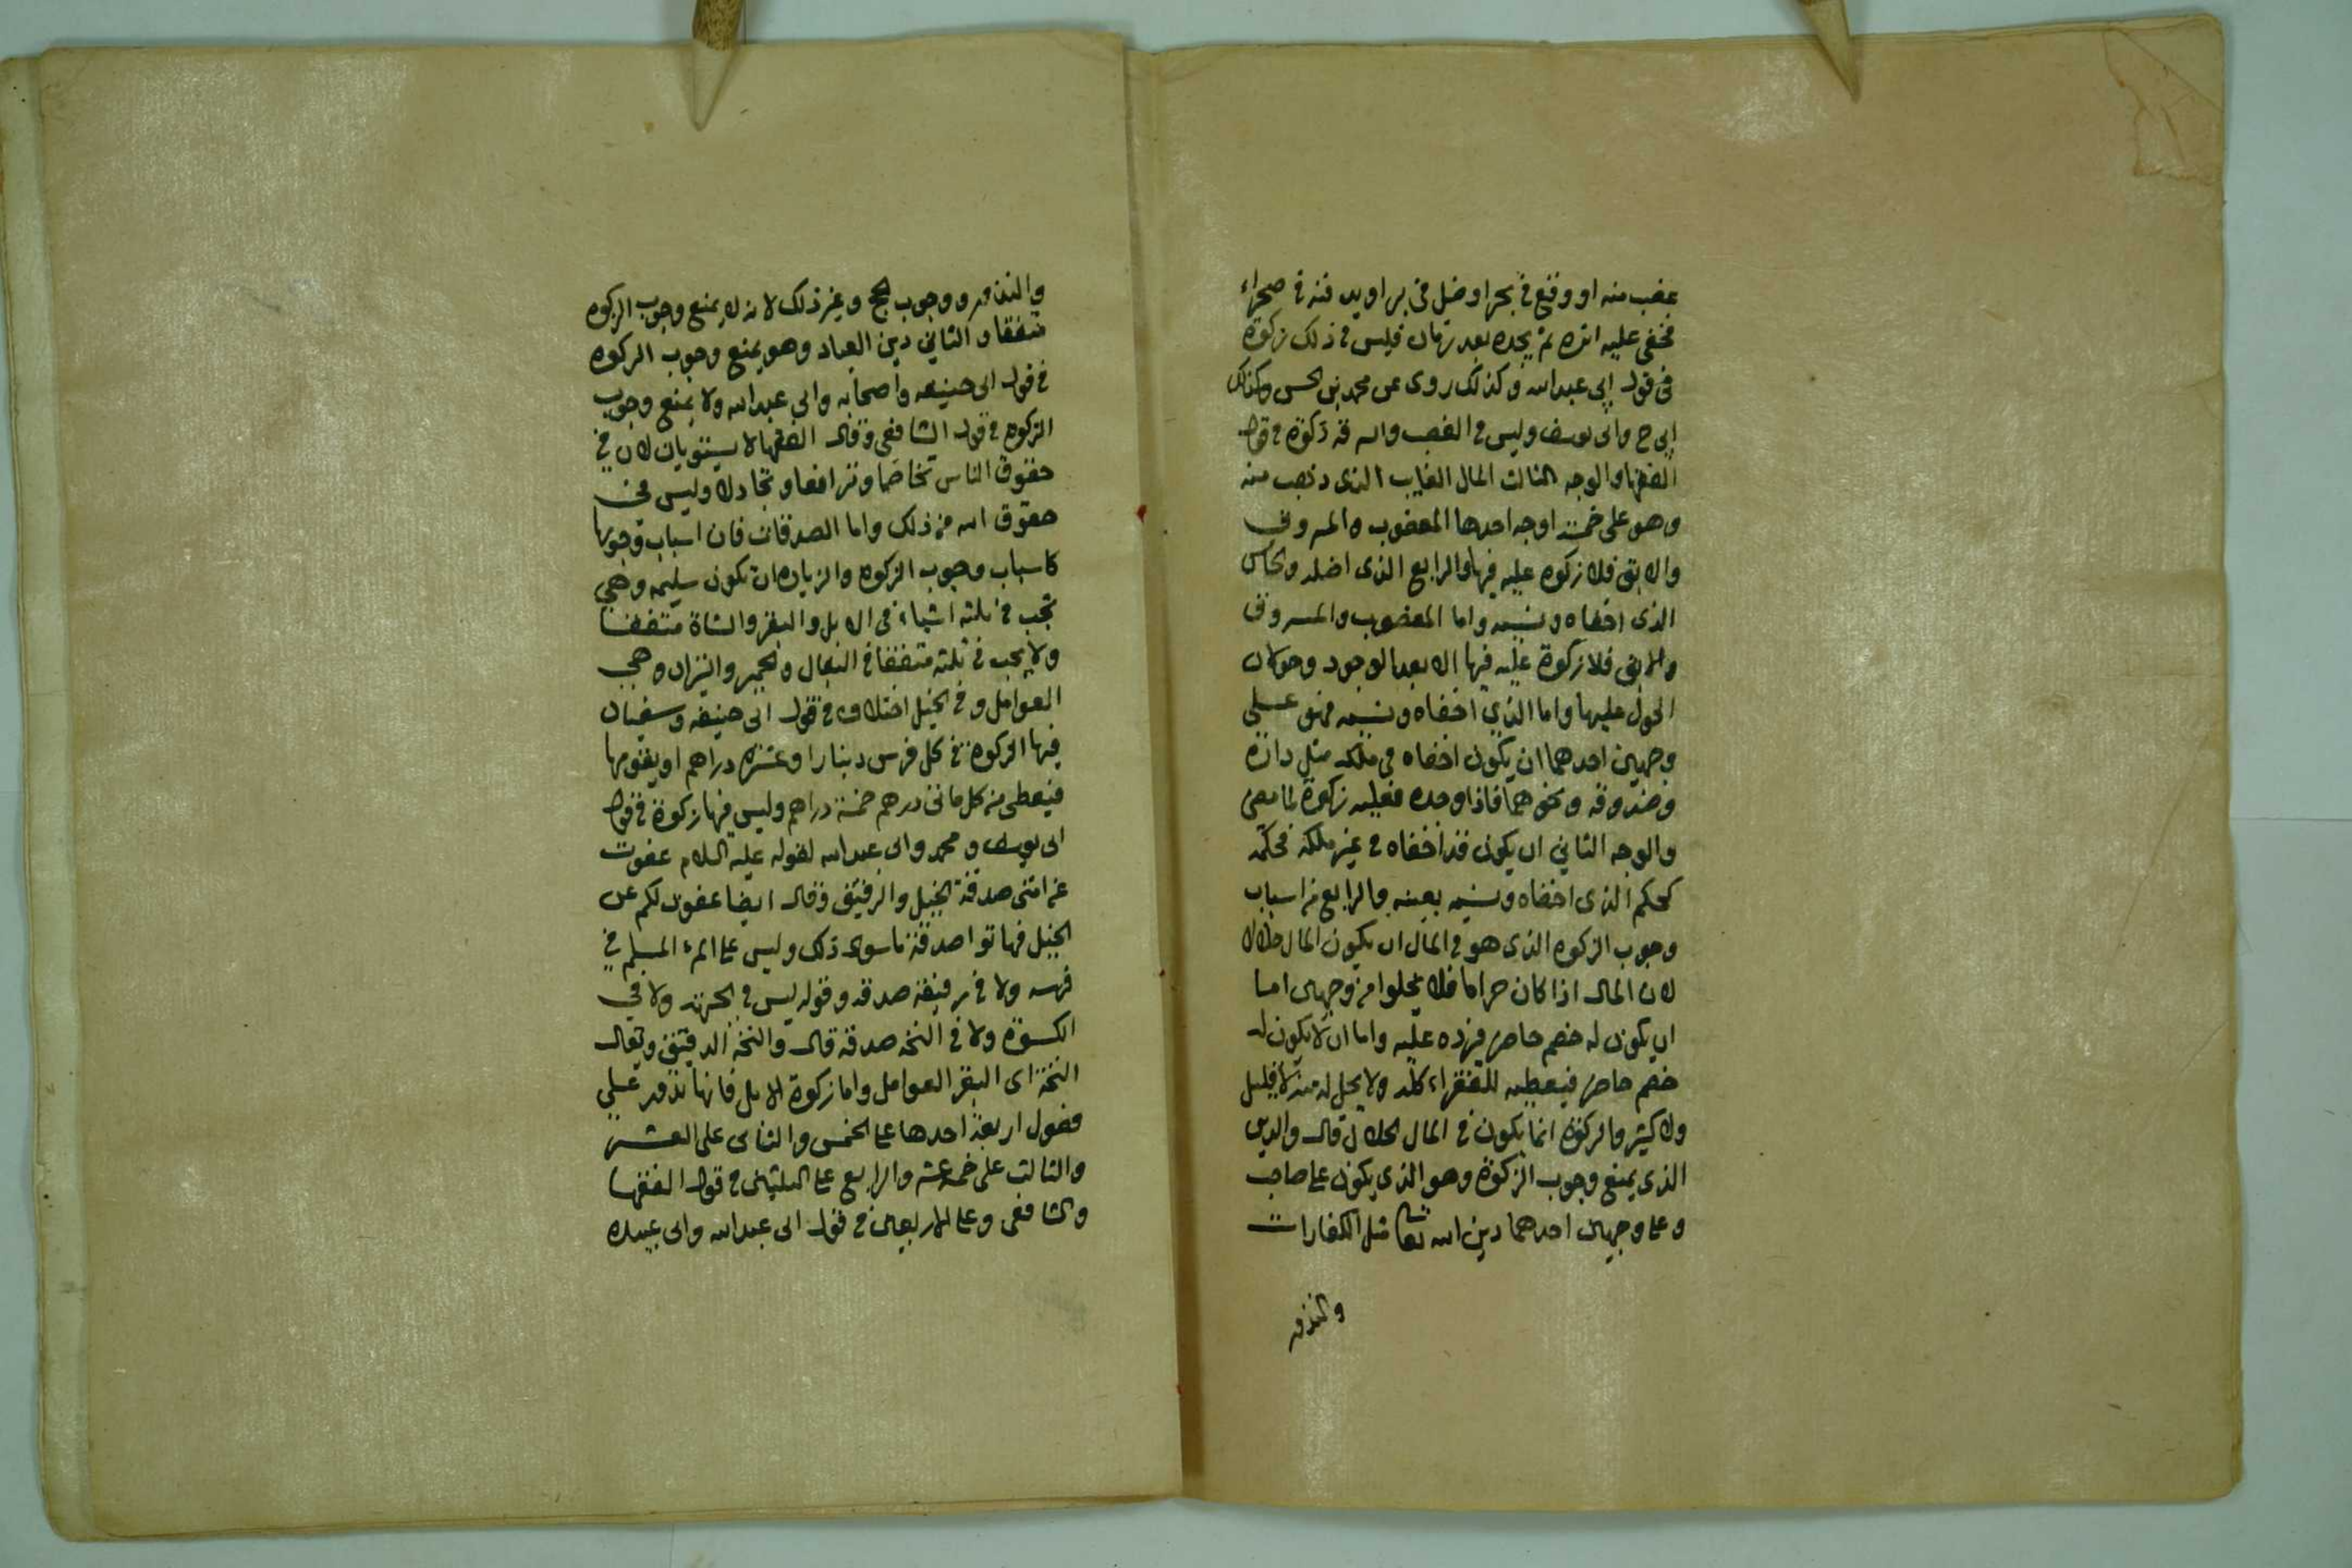 غصب منه او وقع في بحر او ضل في بر او يدفنه في صحراء
فخفي عليه اثره ثم يجده بعد زمان فليس في ذلك زكوة
في قول ابي عبدالله وكذلك روى عن محمد بن الحسن وكذلك
ابي ح وابي يوسف وليس في الغصب والسرقة زكوة في قول
الفقها والوجه الثالث المال الغايب الذي ذهب منه
وهو على خمسة اوجه احدها المغصوب والمسروق
والابق فلا زكوه عليه فيها والرابع الذي اضله والخامس
الذي اخفاه ونسيه واما المغصوب والمسروق
والابق فلا زكوة عليه فيها الا بعد الوجود وحولان
الحول عليها واما الذي اخفاه ونسيه فهو على
وجهين احدهما ان يكون اخفاه في ملكه مثل داره
وصندوقه ونحوهما فاذا وجده فعليه زكوة لما مضى
والوجه الثاني ان يكون قد اخفاه في غير ملكه فحكمه
كحكم الذي اخفاه ونسيه بعينه والرابع من اسباب
وجوب الزكوه الذي هو في المال ان يكون المال حلالا
لان المال اذا كان حراما فلا يخلوا من وجهين اما
ان يكون له خصم حاضر فيرده عليه واما ان لا يكون له
خصم حاضر فيعطيه للفقراء كله ولا يحل له منه لا قليل
ولا كثير والزكوة انما يكون في المال الحلال قال والدين
الذي يمنع وجوب الزكوة وهو الذي يكون على صاحب
وعلى وجهين احدهما دين الله تعا مثل الكفارات
والنذور
والنذور ووجوب الحج وغير ذلك لانه لا يمنع وجوب الزكوه
متفقا والثاني دين العباد وهو يمنع وجوب الزكوه
في قول ابي حنيفه واصحابه وابي عبدالله ولا يمنع وجوب
الزكوه في قول الشافعي وقال الفقها لا يستويان لان في
حقوق الناس تخاصما وترافعا وتجادلا وليس في
حقوق الله من ذلك واما الصدقات فان اسباب وجوبها
كاسباب وجوب الزكوه والزياده ان تكون سليمه وهي
تجب في ثلثه اشياء في الابل والبقر والشاة متفقا
ولا يجب في ثلثه متفقا في البغال والحمير والنيران وهي
العوامل وفي الخيل اختلاف في قول ابي حنيفه وسفيان
فيها الزكوة في كل فرس دينارا وعشره دراهم او يقومها
فيعطى من كل مائتى درهم خمسة دراهم وليس فيها زكوة في قول
ابي يوسف ومحمد وابي عبدالله لقوله عليه السلام عفوت
عن امتي صدقة الخيل والرقيق وقال ايضا عفوت لكم عن
الخيل فهاتوا صدقة ما سوى ذلك وليس على المرء المسلم في
فرسه ولا في رقيقه صدقه وقوله ليس في الجبهة ولا في
الكسوة ولا في النخه صدقه قال والنخة الدقيق ويقال
النخة اى البقر العوامل واما زكوة الابل فانها تدور على
فصول اربعة احدها على الخمس والثاني على العشر
والثالث على خمسة عشر والرابع على الثلثين في قول الفقها
والشافعي وعلى الاربعين في قول ابي عبدالله وابي عبيده